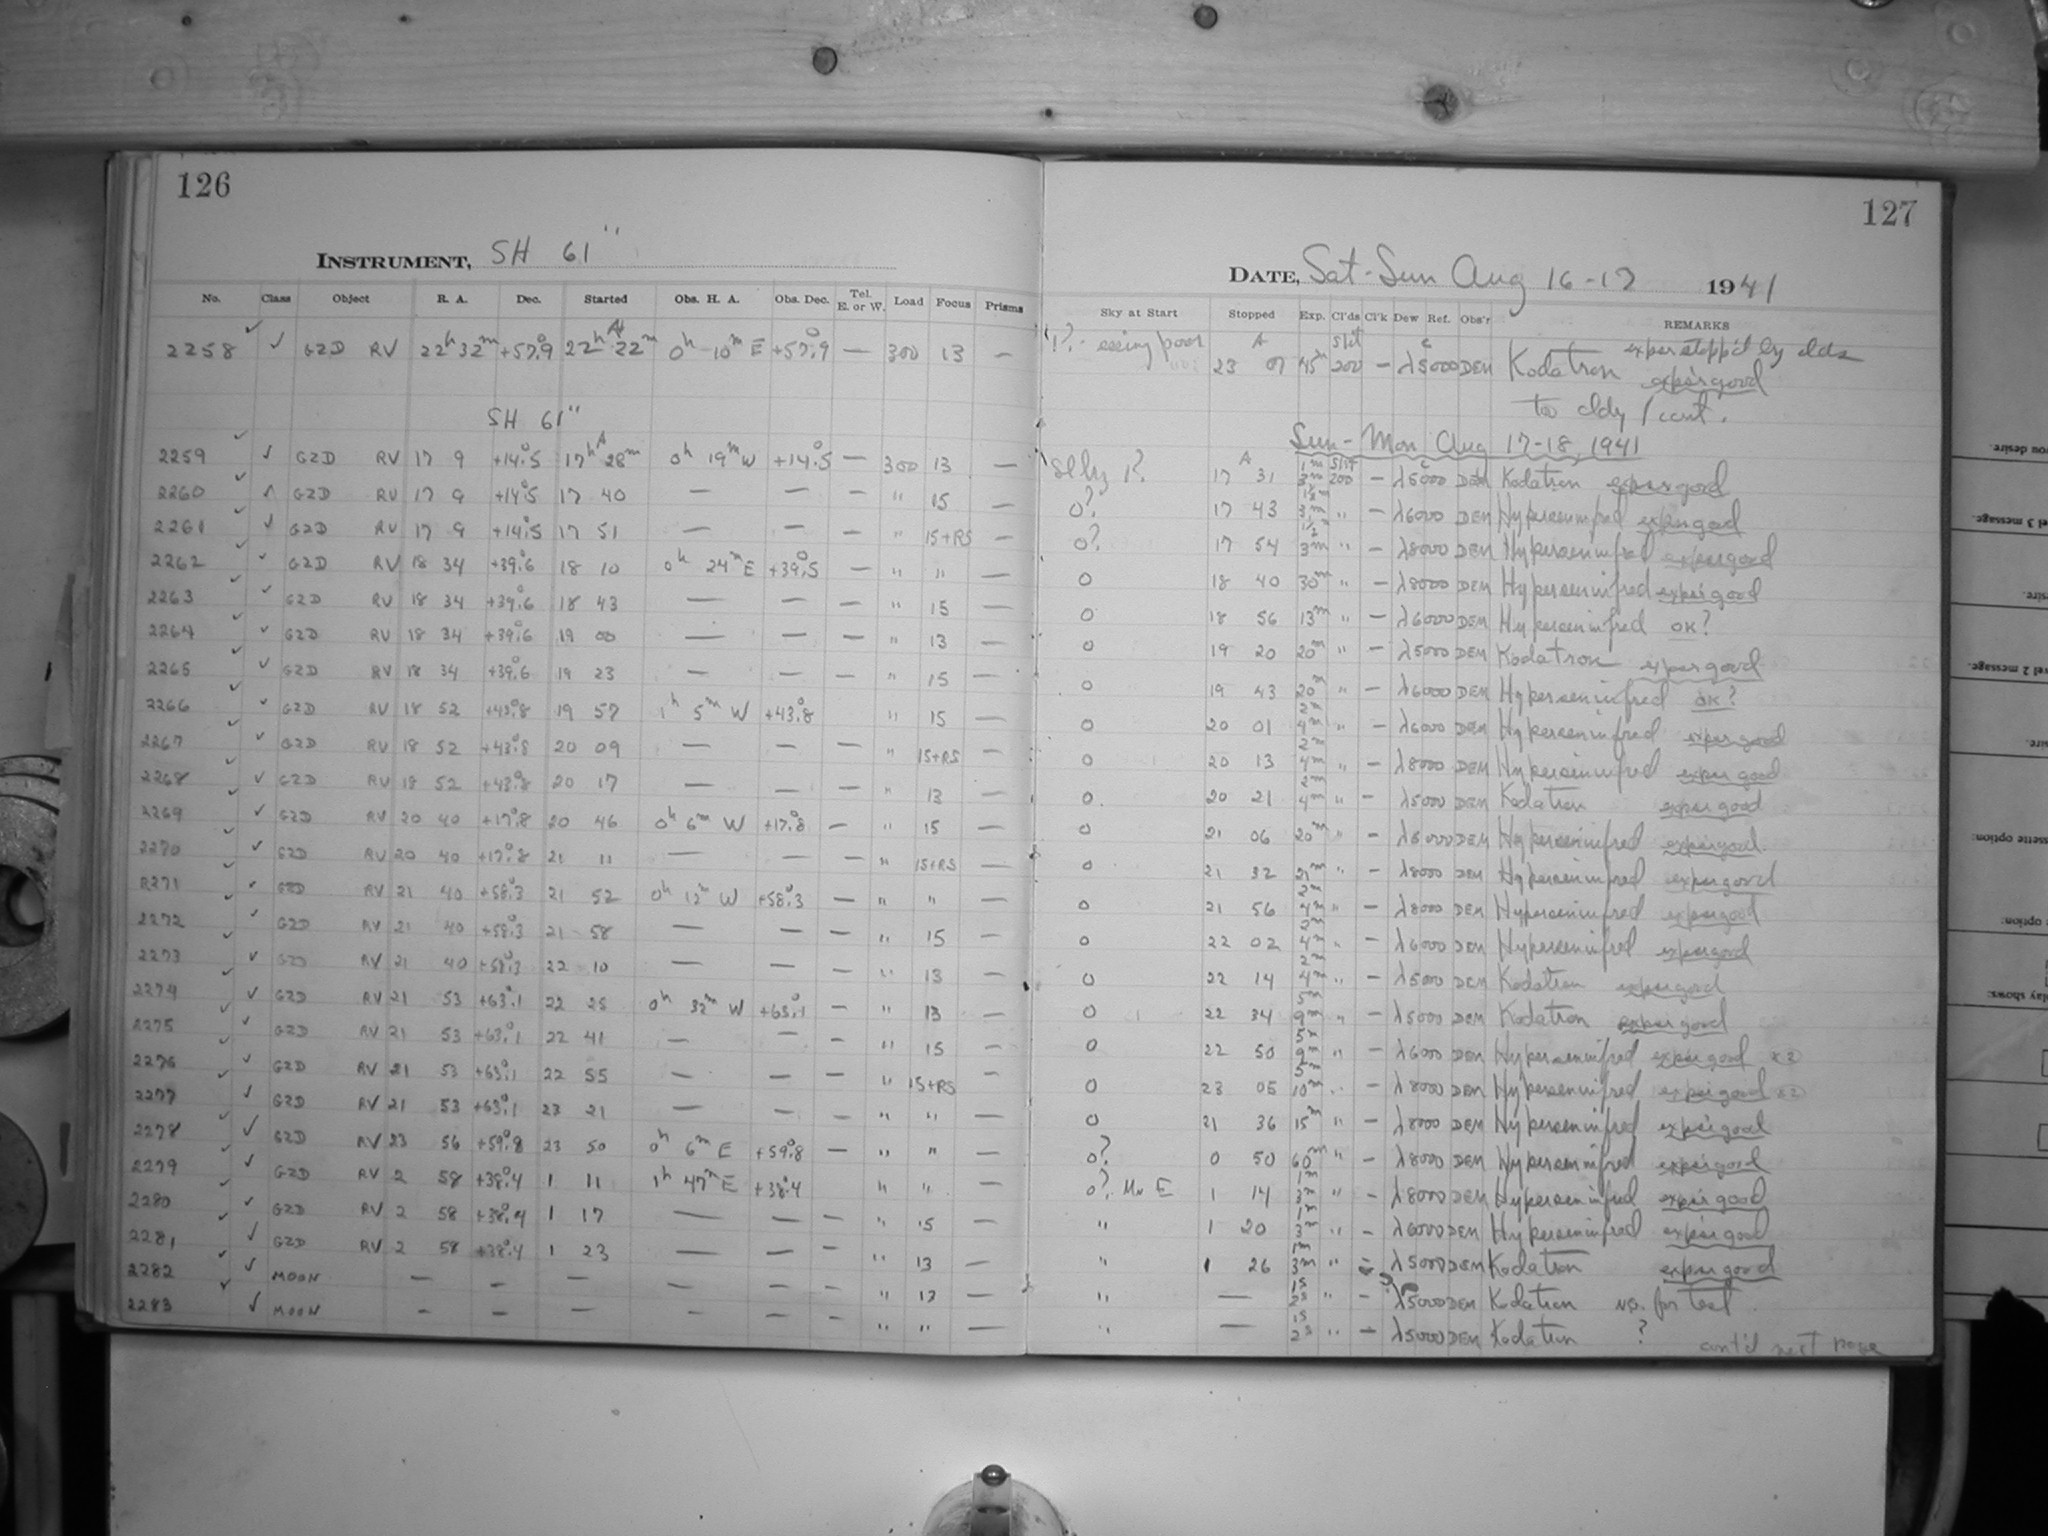 126
INSTRUMENT, SH 61"
No. Class Object R. A. Dec. Started Obs. H. A. Obs. Dec. Tel. E. or W. Load Focus Prisms
2258 ✓ GZD RV 22h 32m +57°.9 22h 22m 0h 10m E +57°.9 — 300 13 —
SH 61"
2259 ✓ GZD RV 17 9 +14°.5 17h 28m 0h 19m W +14°.5 — 300 13 —
2260 ✓ GZD RV 17 9 +14°.5 17 40 — — — " 15 —
2261 ✓ GZD RV 17 9 +14°.5 17 51 — — — " 15+RS —
2262 ✓ GZD RV 18 34 +39°.6 18 10 0h 24m E +39°.5 — " " —
2263 ✓ GZD RV 18 34 +39°.6 18 43 — — — " 15 —
2264 ✓ GZD RV 18 34 +39°.6 19 00 — — — " 13 —
2265 ✓ GZD RV 18 34 +39°.6 19 23 — — — " 15 —
2266 ✓ GZD RV 18 52 +43°.8 19 57 1h 5m W +43°.8 " 15 —
2267 ✓ GZD RV 18 52 +43°.8 20 09 — — — " 15+RS —
2268 ✓ GZD RV 18 52 +43°.8 20 17 — — — " 13 —
2269 ✓ GZD RV 20 40 +17°.8 20 46 0h 6m W +17°.8 — " 15 —
2270 ✓ GZD RV 20 40 +17°.8 21 11 — — — " 15+RS —
2271 ✓ GZD RV 21 40 +58°.3 21 52 0h 12m W +58°.3 — " " —
2272 ✓ GZD RV 21 40 +58°.3 21 58 — — — " 15 —
2273 ✓ GZD RV 21 40 +58°.3 22 10 — — — " 13 —
2274 ✓ GZD RV 21 53 +63°.1 22 25 0h 32m W +63°.1 — " 13 —
2275 ✓ GZD RV 21 53 +63°.1 22 41 — — " 15 —
2276 ✓ GZD RV 21 53 +63°.1 22 55 — — — " 15+RS —
2277 ✓ GZD RV 21 53 +63°.1 23 21 — — — " " —
2278 ✓ GZD RV 23 56 +59°.8 23 50 0h 6m E +59°.8 — " " —
2279 ✓ GZD RV 2 58 +38°.4 1 11 1h 47m E +38°.4 " " —
2280 ✓ GZD RV 2 58 +38°.4 1 17 — — — " 15 —
2281 ✓ GZD RV 2 58 +38°.4 1 23 — — — " 13 —
2282 ✓ MOON — — — — — — " 13 —
2283 ✓ MOON — — — — — — " " —
127
DATE, Sat-Sun Aug 16-17 1941
Sky at Start Stopped Exp. Cl'ds Cl'k Dew Ref. Obs'r REMARKS
1?- seeing poor 23 07 45m slit 200 — λ5000 DEM Kodatron expos stopp'd by clds
expos good
too cldy / cont.
Sun-Mon Aug 17-18, 1941
1? 17 31 1m 3m slit 200 — λ5000 DEM Kodatron expos good
0? 17 43 1½m 3m " — λ6000 DEM Hypersen infred expos good
0? 17 54 1½m 3m " — λ8000 DEM Hypersen infred expos good
0 18 40 30m " — λ8000 DEM Hypersen infred expos good
0 18 56 13m " — λ6000 DEM Hypersen infred OK?
0 19 20 20m " — λ5000 DEM Kodatron expos good
0 19 43 20m " — λ6000 DEM Hypersen infred OK?
0 20 01 2m 4m " — λ6000 DEM Hypersen infred expos good
0 20 13 2m 4m " — λ8000 DEM Hypersen infred expos good
0 20 21 2m 4m " — λ5000 DEM Kodatron expos good
0 21 06 20m " — DEM Hypersen infred expos good
0 21 32 21m " — λ8000 DEM Hypersen infred expos good
0 21 56 2m 4m " — λ8000 DEM Hypersen infred expos good
0 22 02 2m 4m " — λ6000 DEM Hypersen infred expos good
0 22 14 2m 4m " — λ5000 DEM Kodatron expos good
0 22 34 5m 9m " — λ5000 DEM Kodatron expos good
0 22 50 5m 9m " — λ6000 DEM Hypersen infred expos good x2
0 23 05 5m 10m " — λ8000 DEM Hypersen infred expos good x2
0 21 36 15m " — λ8000 DEM Hypersen infred expos good
0? 0 50 60m " — λ8000 DEM Hypersen infred expos good
0? Mn E 1 14 1m 3m " — λ8000 DEM Hypersen infred expos good
" 1 20 1m 3m " — λ6000 DEM Hypersen infred expos good
" 1 26 1m 3m " — λ5000 DEM Kodatron expos good
" — 1s 2s " — λ5000 DEM Kodatron no. for test
" — 1s 2s " — λ5000 DEM Kodatron ?
cont'd next page
you desire.
el 3 message.
sire.
vel 2 message.
ire.
ssette option:
option:
lay shows: